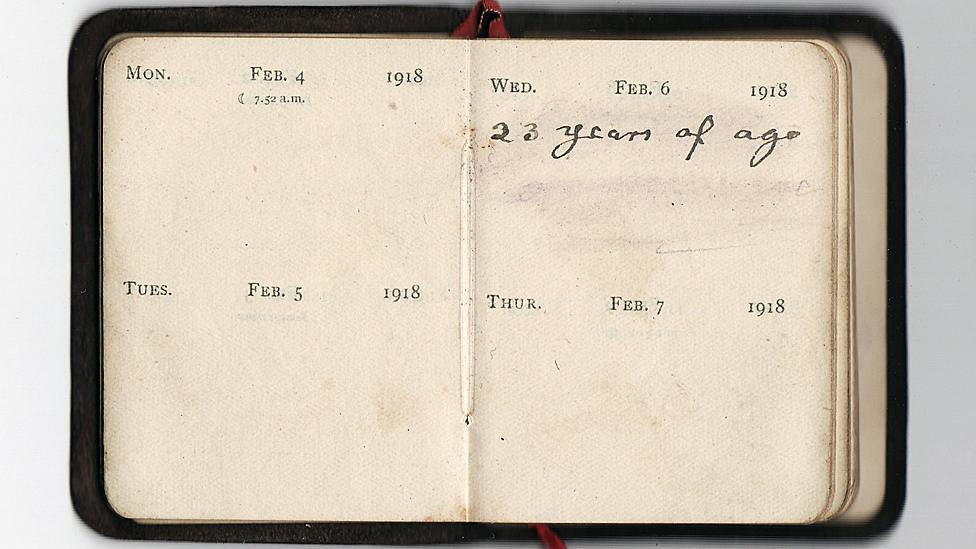 MON. FEB. 4 1918
☾ 7.52 a.m.
TUES. FEB. 5 1918
WED. FEB. 6 1918
23 years of age
THUR. FEB. 7 1918